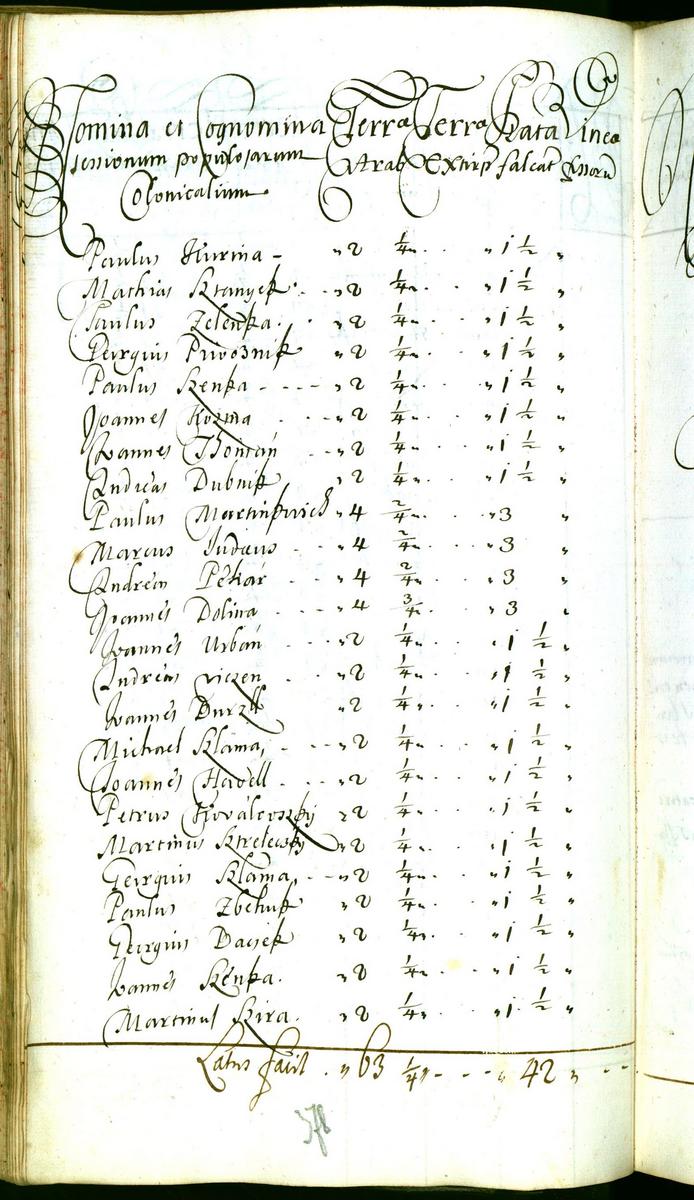 Nomina et Cognomina Terra Terra Prata Vinea
sessionum populosarum Arab Extirp falcat Fossoru
Colonicalium
Paulus Kurina - „ 2 1/4 „ . „ 1 1/2 „
Mathias Sztanyek . . „ 2 1/4 „ . . „ 1 1/2 „
Paulus Zelenka . . „ 2 1/4 „ . . „ 1 1/2 „
Georgius Privoznik „ 2 1/4 „ . . „ 1 1/2 „
Paulus Szenka - - - - „ 2 1/4 „ . . „ 1 1/2 „
Joannes Kozma . . - „ 2 1/4 „ . . „ 1 1/2 „
Joannes Thoman „ 2 1/4 „ . . „ 1 1/2 „
Andreas Dubnik „ 2 1/4 „ . . „ 1 1/2 „
Paulus Martinkovich „ 4 2/4 „ . . „ 3 „
Marcus Judaeus . . - „ 4 2/4 „ . . „ 3 „
Andreas Pekar . . - „ 4 2/4 „ . . „ 3 „
Joannes Dolina . . - „ 4 3/4 . . „ 3 „
Joannes Urban . . . „ 2 1/4 „ . . „ 1 1/2 „
Andreas . . - „ 2 1/4 „ . . „ 1 1/2 „
Joannes „ 2 1/4 „ . . „ 1 1/2 „
Michael Szlama, . - - „ 2 1/4 „ . . „ 1 1/2 „
Joannes Havell . . - „ 2 1/4 „ . . „ 1 1/2 „
Petrus Kovalovszky „ 2 1/4 „ . . „ 1 1/2 „
Martinus Sztreleczky „ 2 1/4 „ . . „ 1 1/2 „
Georgius Szlama, . - - „ 2 1/4 „ . . „ 1 1/2 „
Paulus „ 2 1/4 „ . . „ 1 1/2 „
Georgius Dacsek „ 2 1/4 „ . . „ 1 1/2 „
Joannes Szenka . „ 2 1/4 „ . . „ 1 1/2 „
Martinus Szira . „ 2 1/4 „ . . „ 1 1/2 „
Latus facit . „ 63 1/4 „ - - - „ 42 „ - -
378